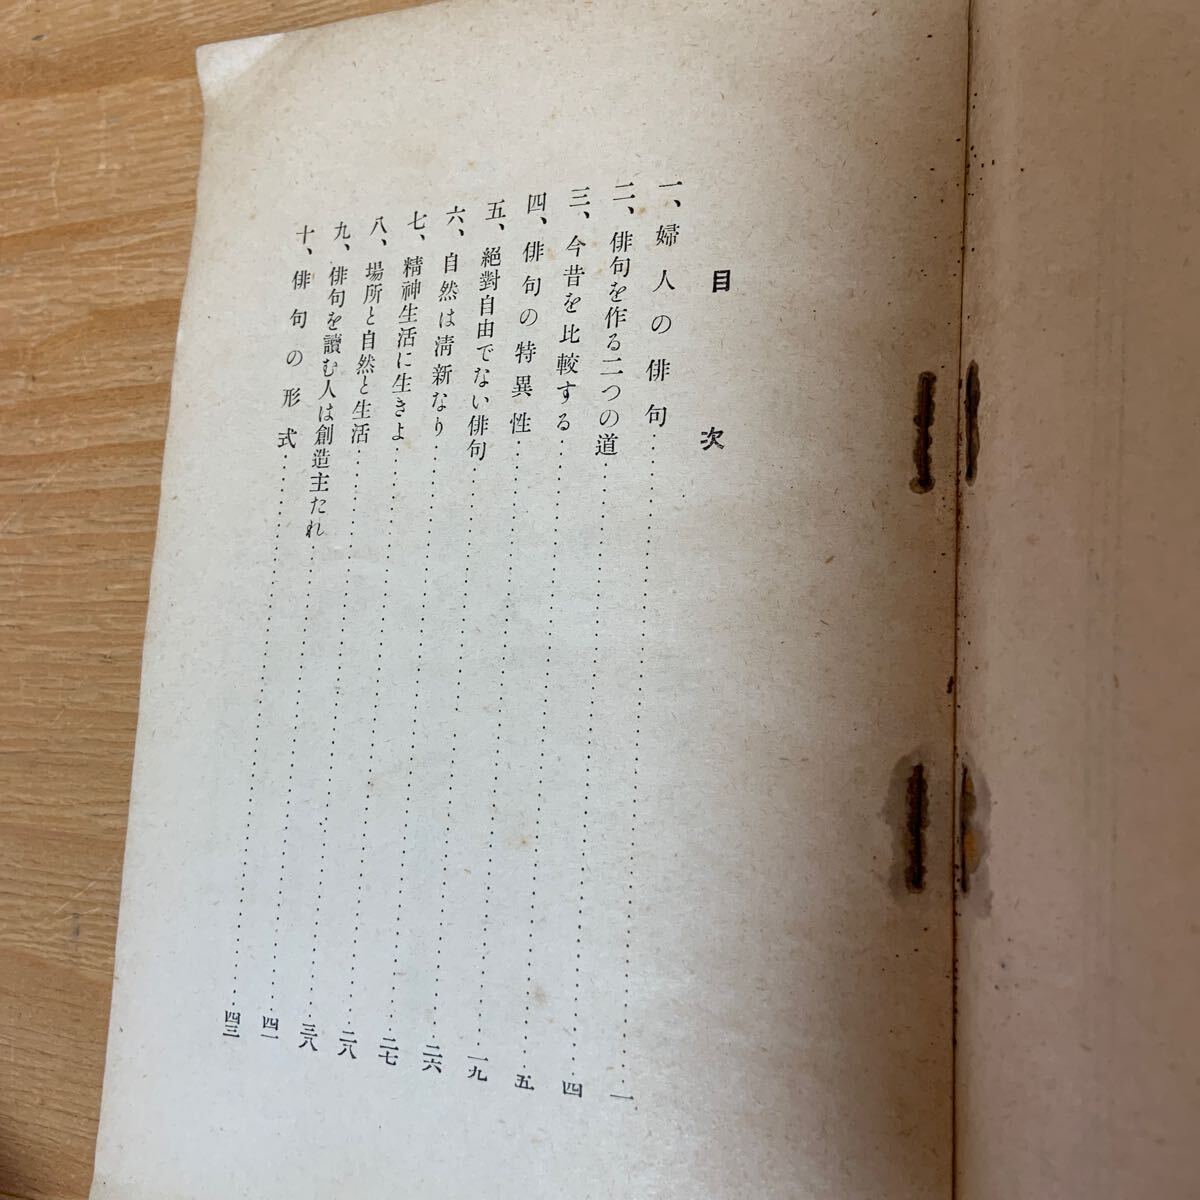 目次
一、婦人の俳句………一
二、俳句を作る二つの道………四
三、今昔を比較する………五
四、俳句の特異性………一九
五、絕對自由でない俳句………二六
六、自然は淸新なり………二七
七、精神生活に生きよ………二八
八、場所と自然と生活………三八
九、俳句を讀む人は創造主たれ………四一
十、俳句の形式………四三